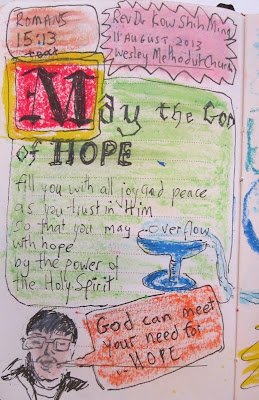 ROMANS
15:13
Rev Dr Kow Shih Ming
11 AUGUST 2013
Wesley Methodist Church
May the God
of HOPE
fill you with all joy and peace
as you trust in Him
so that you may overflow
with hope
by the power of
the Holy Spirit
God can meet
your need for
HOPE